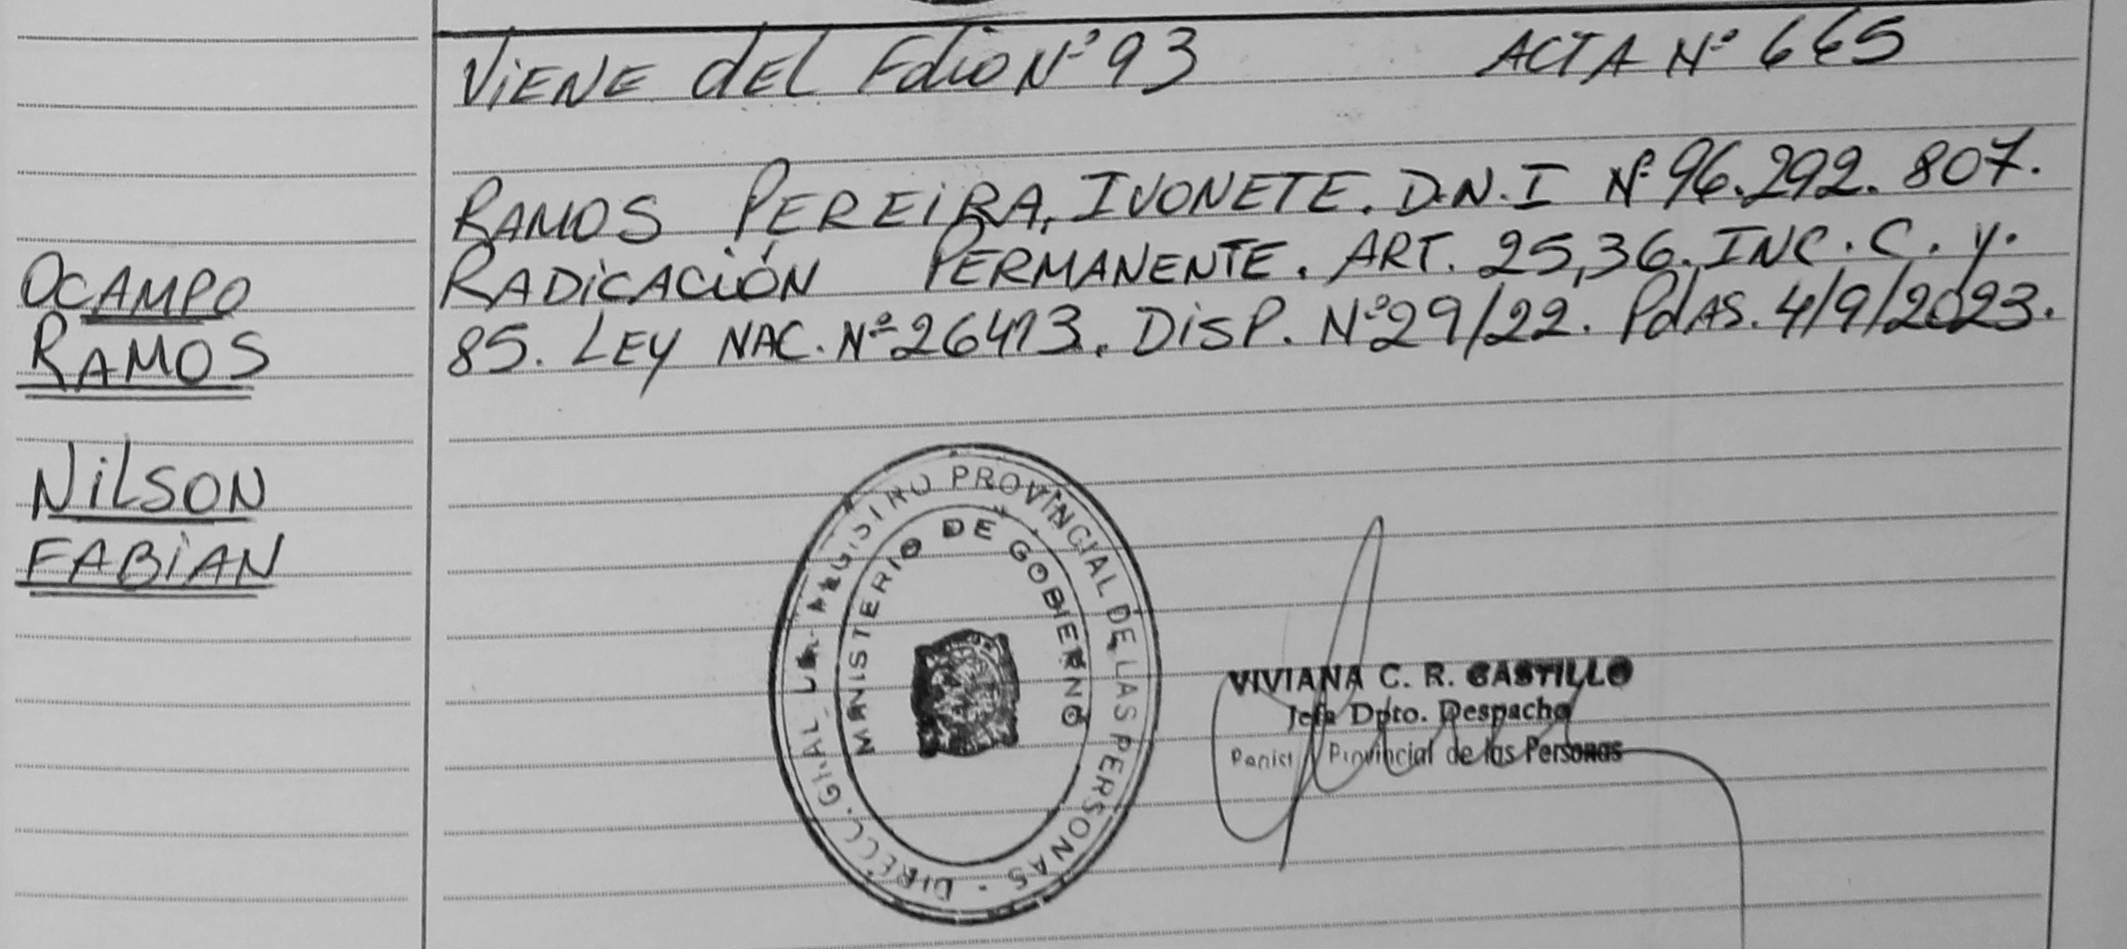 VIENE DEL Folio Nº 93 ACTA Nº 665
RAMOS PEREIRA, IVONETE. D.N.I Nº 96.292.807.
RADICACIÓN PERMANENTE. ART. 25,36. INC. C. y.
85. LEY NAC. Nº 26413. DISP. Nº 29/22. PdAS. 4/9/2023.
OCAMPO
RAMOS
NILSON
FABIAN
DIRECC. GRAL. REGISTRO PROVINCIAL DE LAS PERSONAS
MINISTERIO DE GOBIERNO
VIVIANA C. R. CASTILLO
Jefa Dpto. Despacho
Provincial de las Personas